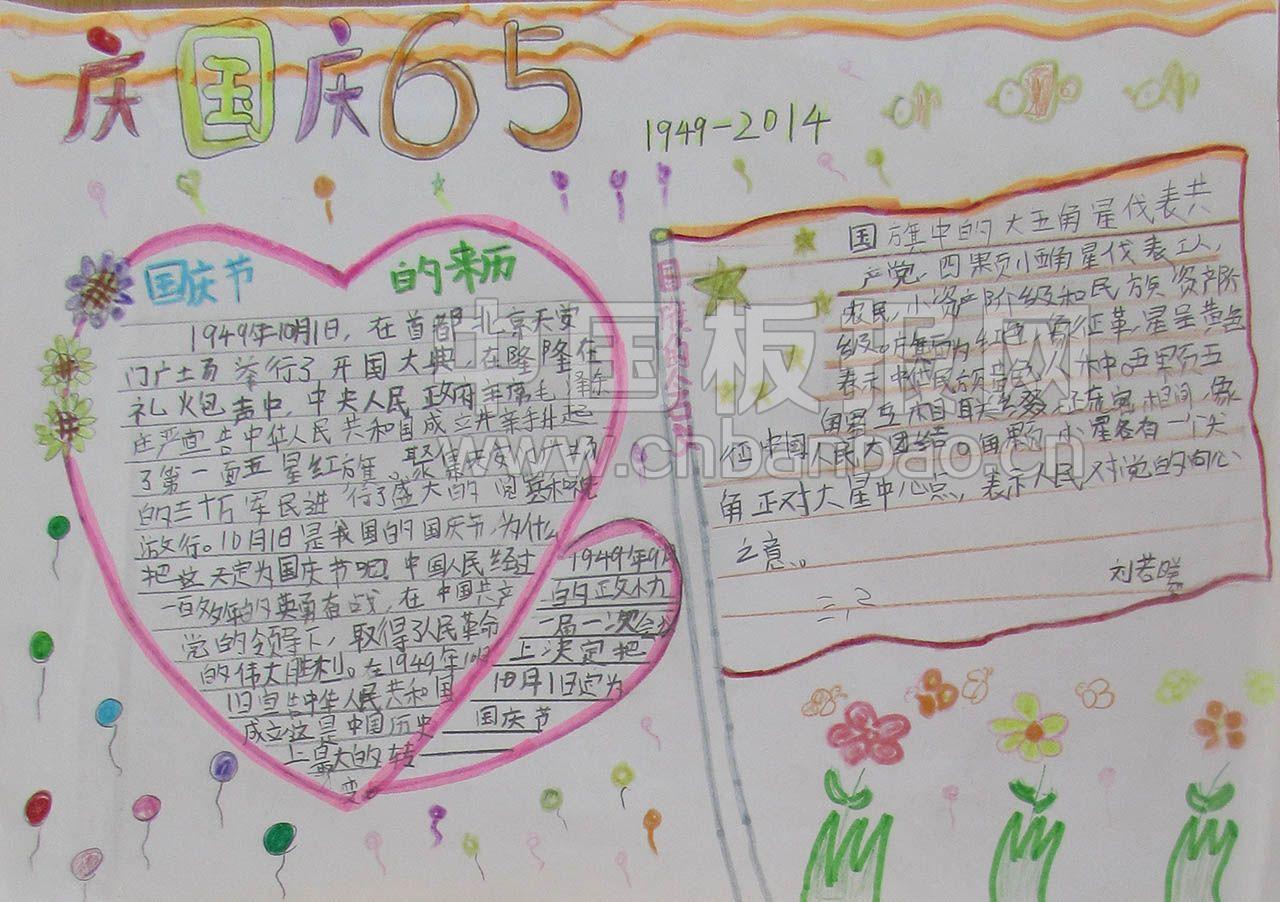 庆国庆65
1949-2014
国庆节 的来历
1949年10月1日，在首都北京天安
门广土场举行了开国大典，在隆隆在
礼火包声中，中央人民政府主席毛泽东
庄严宣告中华人民共和国成立并亲手升起
了第一面五星红旗。聚集天安门广场
的三十万军民进行了盛大的阅兵和
游行。10月1日是我国的国庆节，为什么
把这天定为国庆节吧？中国人民经过
一百多年的英勇奋战，在中国共产
党的领导下，取得了人民革命
的伟大胜利。在1949年10月
1日宣告中华人民共和国
成立这是中国历史
上最大的转
变
1949年9月
的政协
一届一次会议
上决定把
10月1日定为
国庆节
国旗的含义
国旗中的大五角星代表共
产党，四颗小五角星代表工人，
农民，小资产阶级和民族资产阶
级。旗面为红色，象征革，星呈黄色
表示中华民族
五颗五
角星互相联
相间，象
征中国人民大团结。
小星各有一个尖
角正对大星中心点，表示人民对党的向心
之意。
刘若曦
三，2
中国板报网
www.cnbanbao.cn